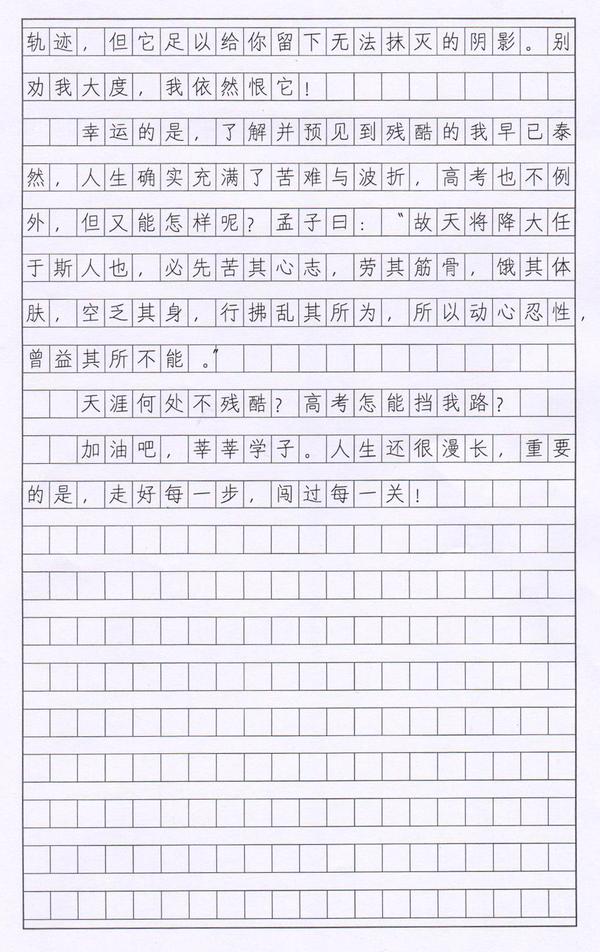 轨迹，但它足以给你留下无法抹灭的阴影。别
劝我大度，我依然恨它！
幸运的是，了解并预见到残酷的我早已泰
然，人生确实充满了苦难与波折，高考也不例
外，但又能怎样呢？孟子曰：“故天将降大任
于斯人也，必先苦其心志，劳其筋骨，饿其体
肤，空乏其身，行拂乱其所为，所以动心忍性，
曾益其所不能。”
天涯何处不残酷？高考怎能挡我路？
加油吧，莘莘学子。人生还很漫长，重要
的是，走好每一步，闯过每一关！